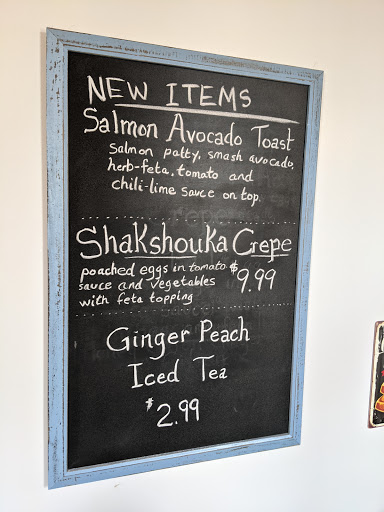 NEW ITEMS
Salmon Avocado Toast
Salmon patty, smash avocado,
herb-feta, tomato and
chili-lime sauce on top.
Shakshouka Crepe
poached eggs in tomato $9.99
sauce and vegetables
with feta topping
Ginger Peach
Iced Tea
$2.99